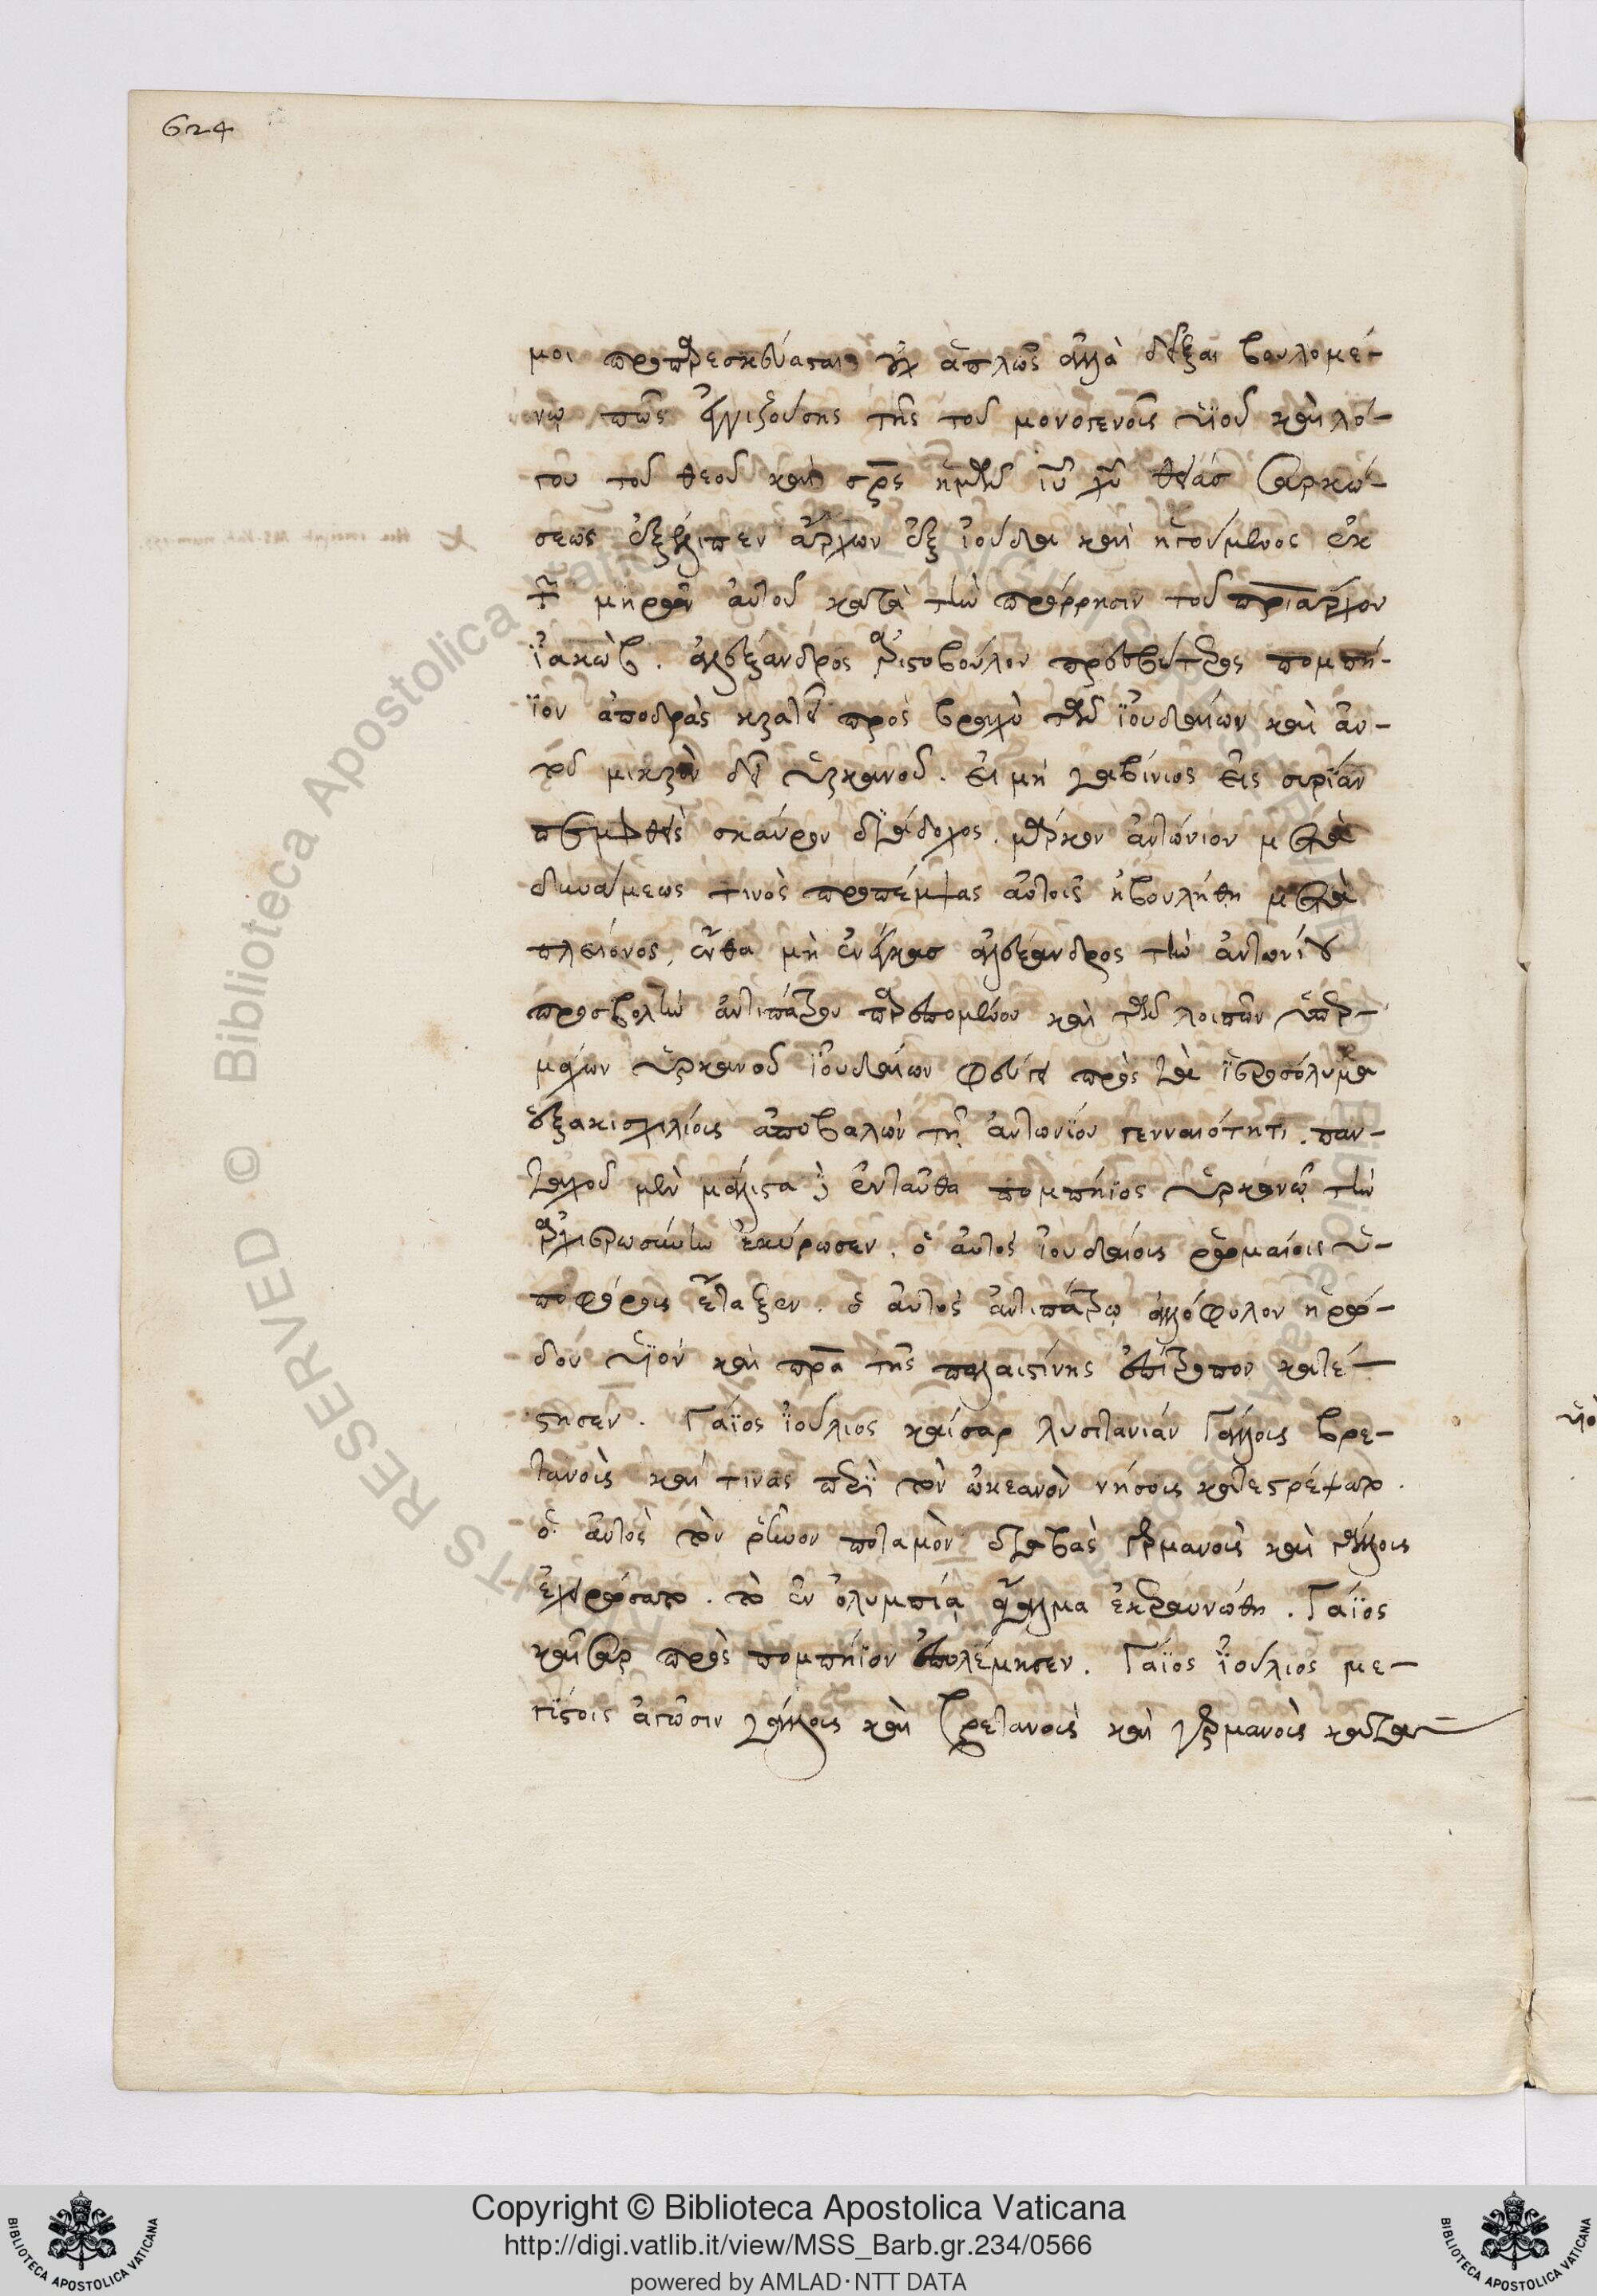 624
μοι προπαρεσκεύασται οὐχ ἁπλῶς ἀλλὰ δεῖξαι βουλομέ-
νῳ πῶς ἐγγιζούσης τῆς τοῦ μονογενοῦς υἱοῦ καὶ λό-
γου τοῦ θεοῦ καὶ σρ̅ς ἡμῶν ιυ χυ θείας σαρκώ-
σεως ἐξέλιπεν ἄρχων ἐξ ἰούδα καὶ ἡγούμενος ἐκ
τῶν μηρῶν αὐτοῦ κατὰ τὴν πρόρρησιν τοῦ πριάρχου
ἰακώβ. ἀλέξανδρος ἀριστοβούλου πρεσβύτερος πομπή-
ϊον ἀποδρὰς κρατεῖ πρὸς βραχὺ τῶν ἰουδαίων καὶ ἀν-
μικρὸν δεῖν ὑρκανοῦ. εἰ μὴ γαβίνιος εἰς συρίαν
πεμφθεὶς σκαύρου διάδοχος. μάρκον ἀντώνιον μετὰ
δυνάμεως τινὸς προπέμψας αὐτοῖς ἠβουλήθη μετὰ
πλείονος, ἔνθα μὴ ἐνέγκας ἀλέξανδρος τὴν ἀντωνίου
προσβολὴν ἀντιπάτρου παρεπομένου καὶ τῶν λοιπῶν ὑπερ-
μάχων ὑρκανοῦ ἰουδαίων φεύγει πρὸς τὰ ἱεροσόλυμα
ἑξακισχιλίους ἀποβαλὼν τῇ ἀντωνίου γενναιότητι. παν-
ταχοῦ μὲν μάλιστα δὲ ἐνταῦθα πομπήϊος ὑρκανῷ τὴν
ἀρχιερωσύνην ἐκύρωσεν. ὁ αὐτὸς ἰουδαίους ῥωμαίοις ὑ-
ποφόρους ἔταξεν. ὁ αὐτὸς ἀντιπάτρῳ ἀλλόφυλον ἡρώ-
δου υἱὸν καὶ πρα τῆς παλαιστίνης ἐπίτροπον κατέ-
στησεν. Γάϊος ἰούλιος καίσαρ λυσιτανίαν Γάλλους βρε-
τανοὺς καί τινας περὶ τὸν ὠκεανὸν νήσους κατεστρέψατο.
ὁ αὐτὸς τὸν ῥῆνον ποταμὸν διαβὰς γερμανοὺς καὶ γάλλους
ἐχειρώσατο. τὸ ἐν ὀλυμπίᾳ ἄγαλμα ἐκεραυνώθη. Γάϊος
καῖσαρ πρὸς πομπήϊον ἐπολέμησεν. Γάϊος ἰούλιος με-
γίστοις ἀγῶσιν γάλλους καὶ βρετανοὺς καὶ γερμανοὺς
Copyright © Biblioteca Apostolica Vaticana
http://digi.vatlib.it/view/MSS_Barb.gr.234/0566
powered by AMLAD·NTT DATA